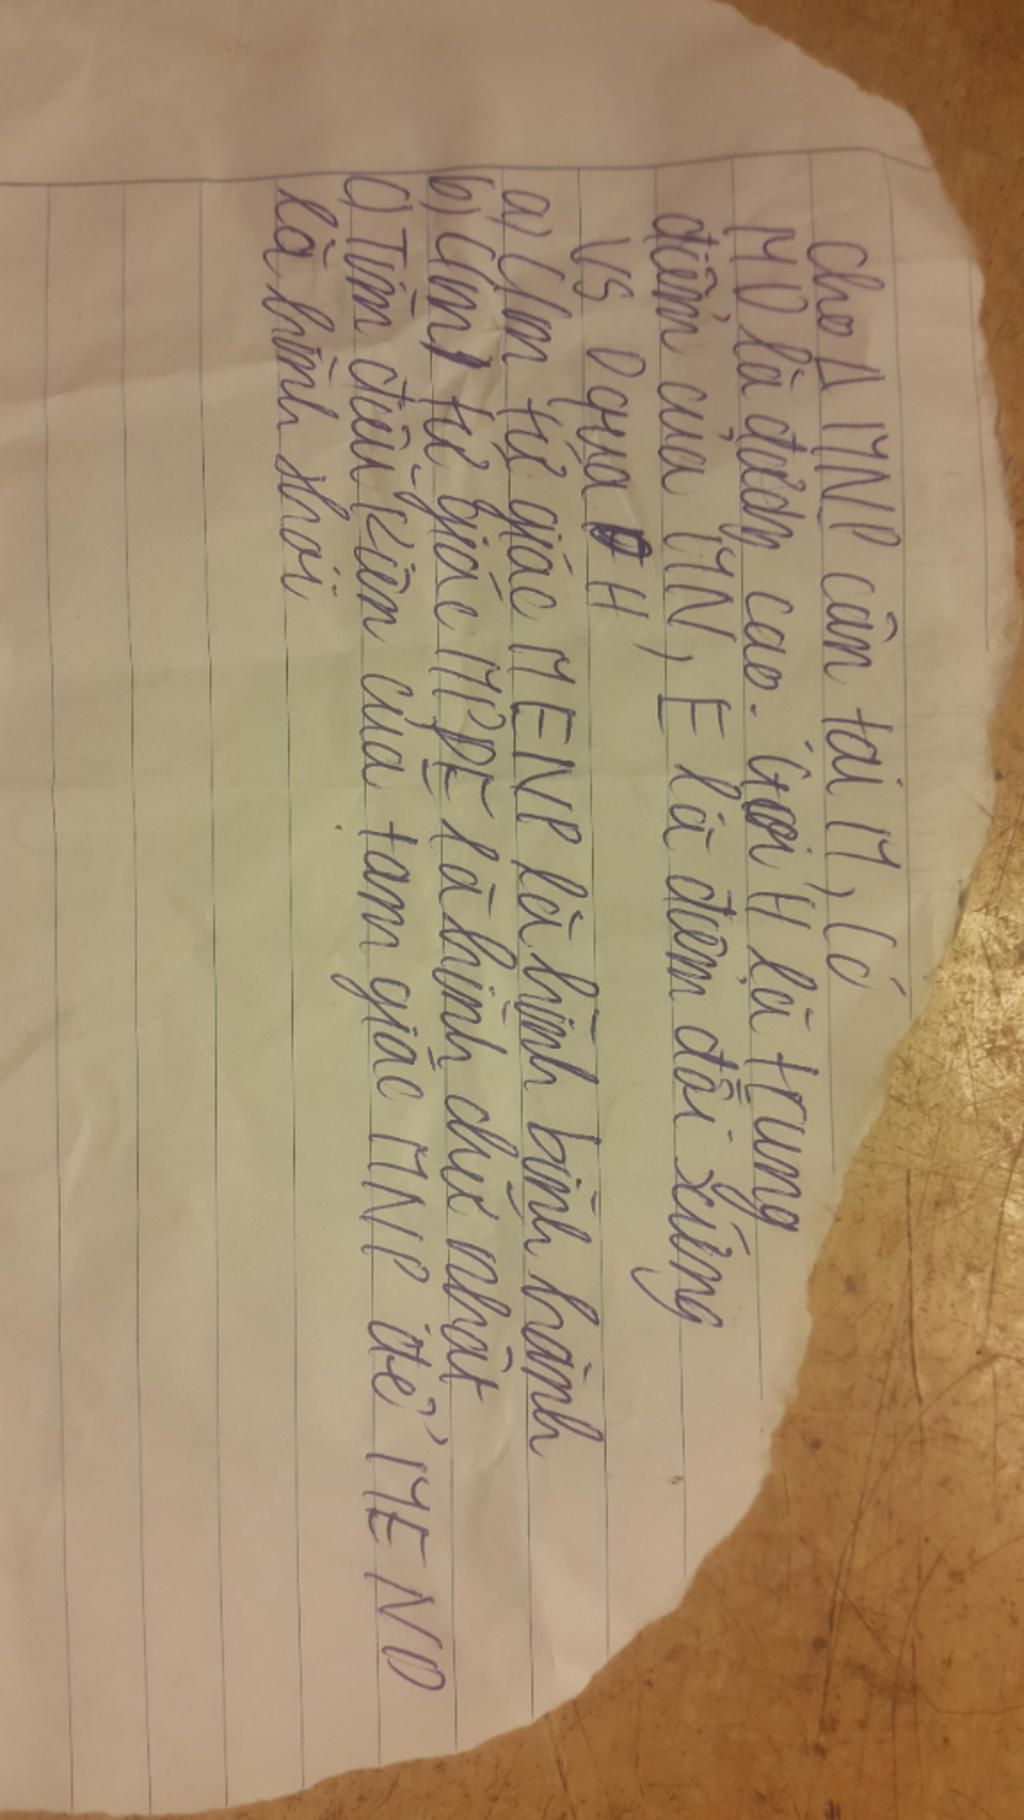 Cho Δ MNP cân tại M, Có
MD là đường cao. Gọi H là trung
điểm của MN, E là điểm đối xứng
vs D qua H
a) C/m tứ giác MENP là hình bình hành
b) C/m tứ giác MPDE là hình chữ nhật
c) Tìm điều kiện của tam giác MNP để MEND
là hình thoi